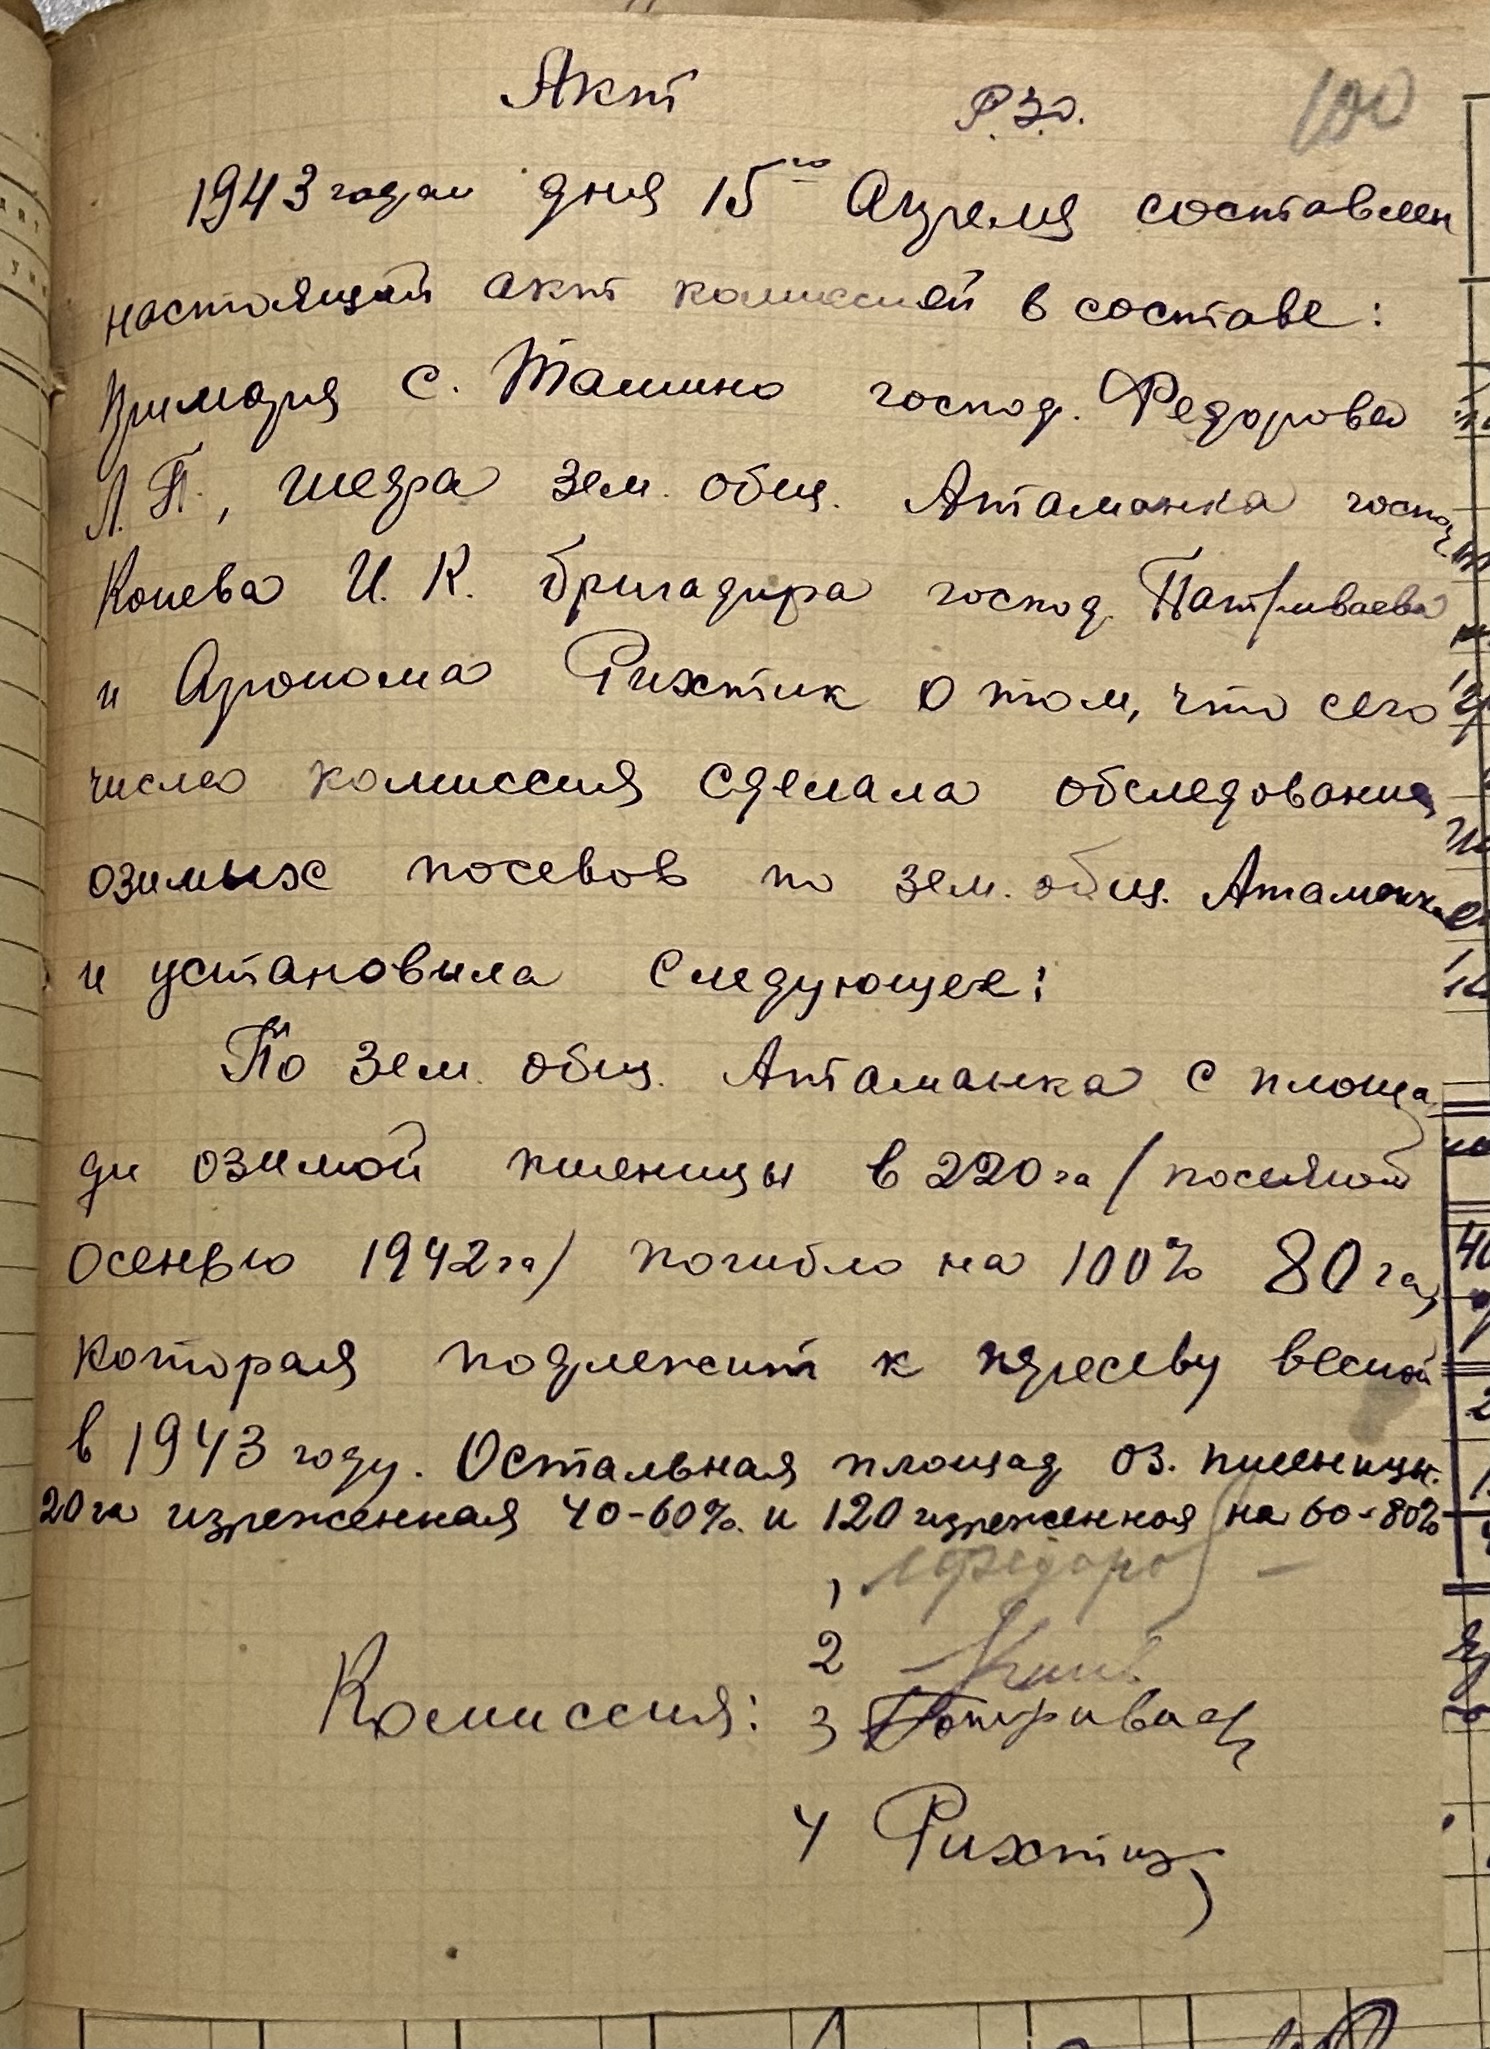 Акт Р.З.О. 100
1943 года дня 15го Апреля составлен
настоящий акт комиссией в составе:
Примаря с. Ташино господ. Федорова
Л.П., шефа зем. общ. Атаманка господ
Конева И. К. бригадира господ. Патриваева
и Агронома Рихтик о том, что сего
число комиссия сделала обследование
озимых посевов по зем. общ. Атаманка
и установила следующее:
По зем. общ. Атаманка с площа
ди озимой пшеницы в 220 га / посеяной
осенью 1942 га / погибло на 100% 80 га,
которая подлежит к пересеву весной
в 1943 году. Остальная площад оз. пшеницы.
20 га изреженная 40-60% и 120 изреженная на 60-80%
1, Лфедоров
2 Конев
Комиссия: 3 Потриваев
4 Рихтик